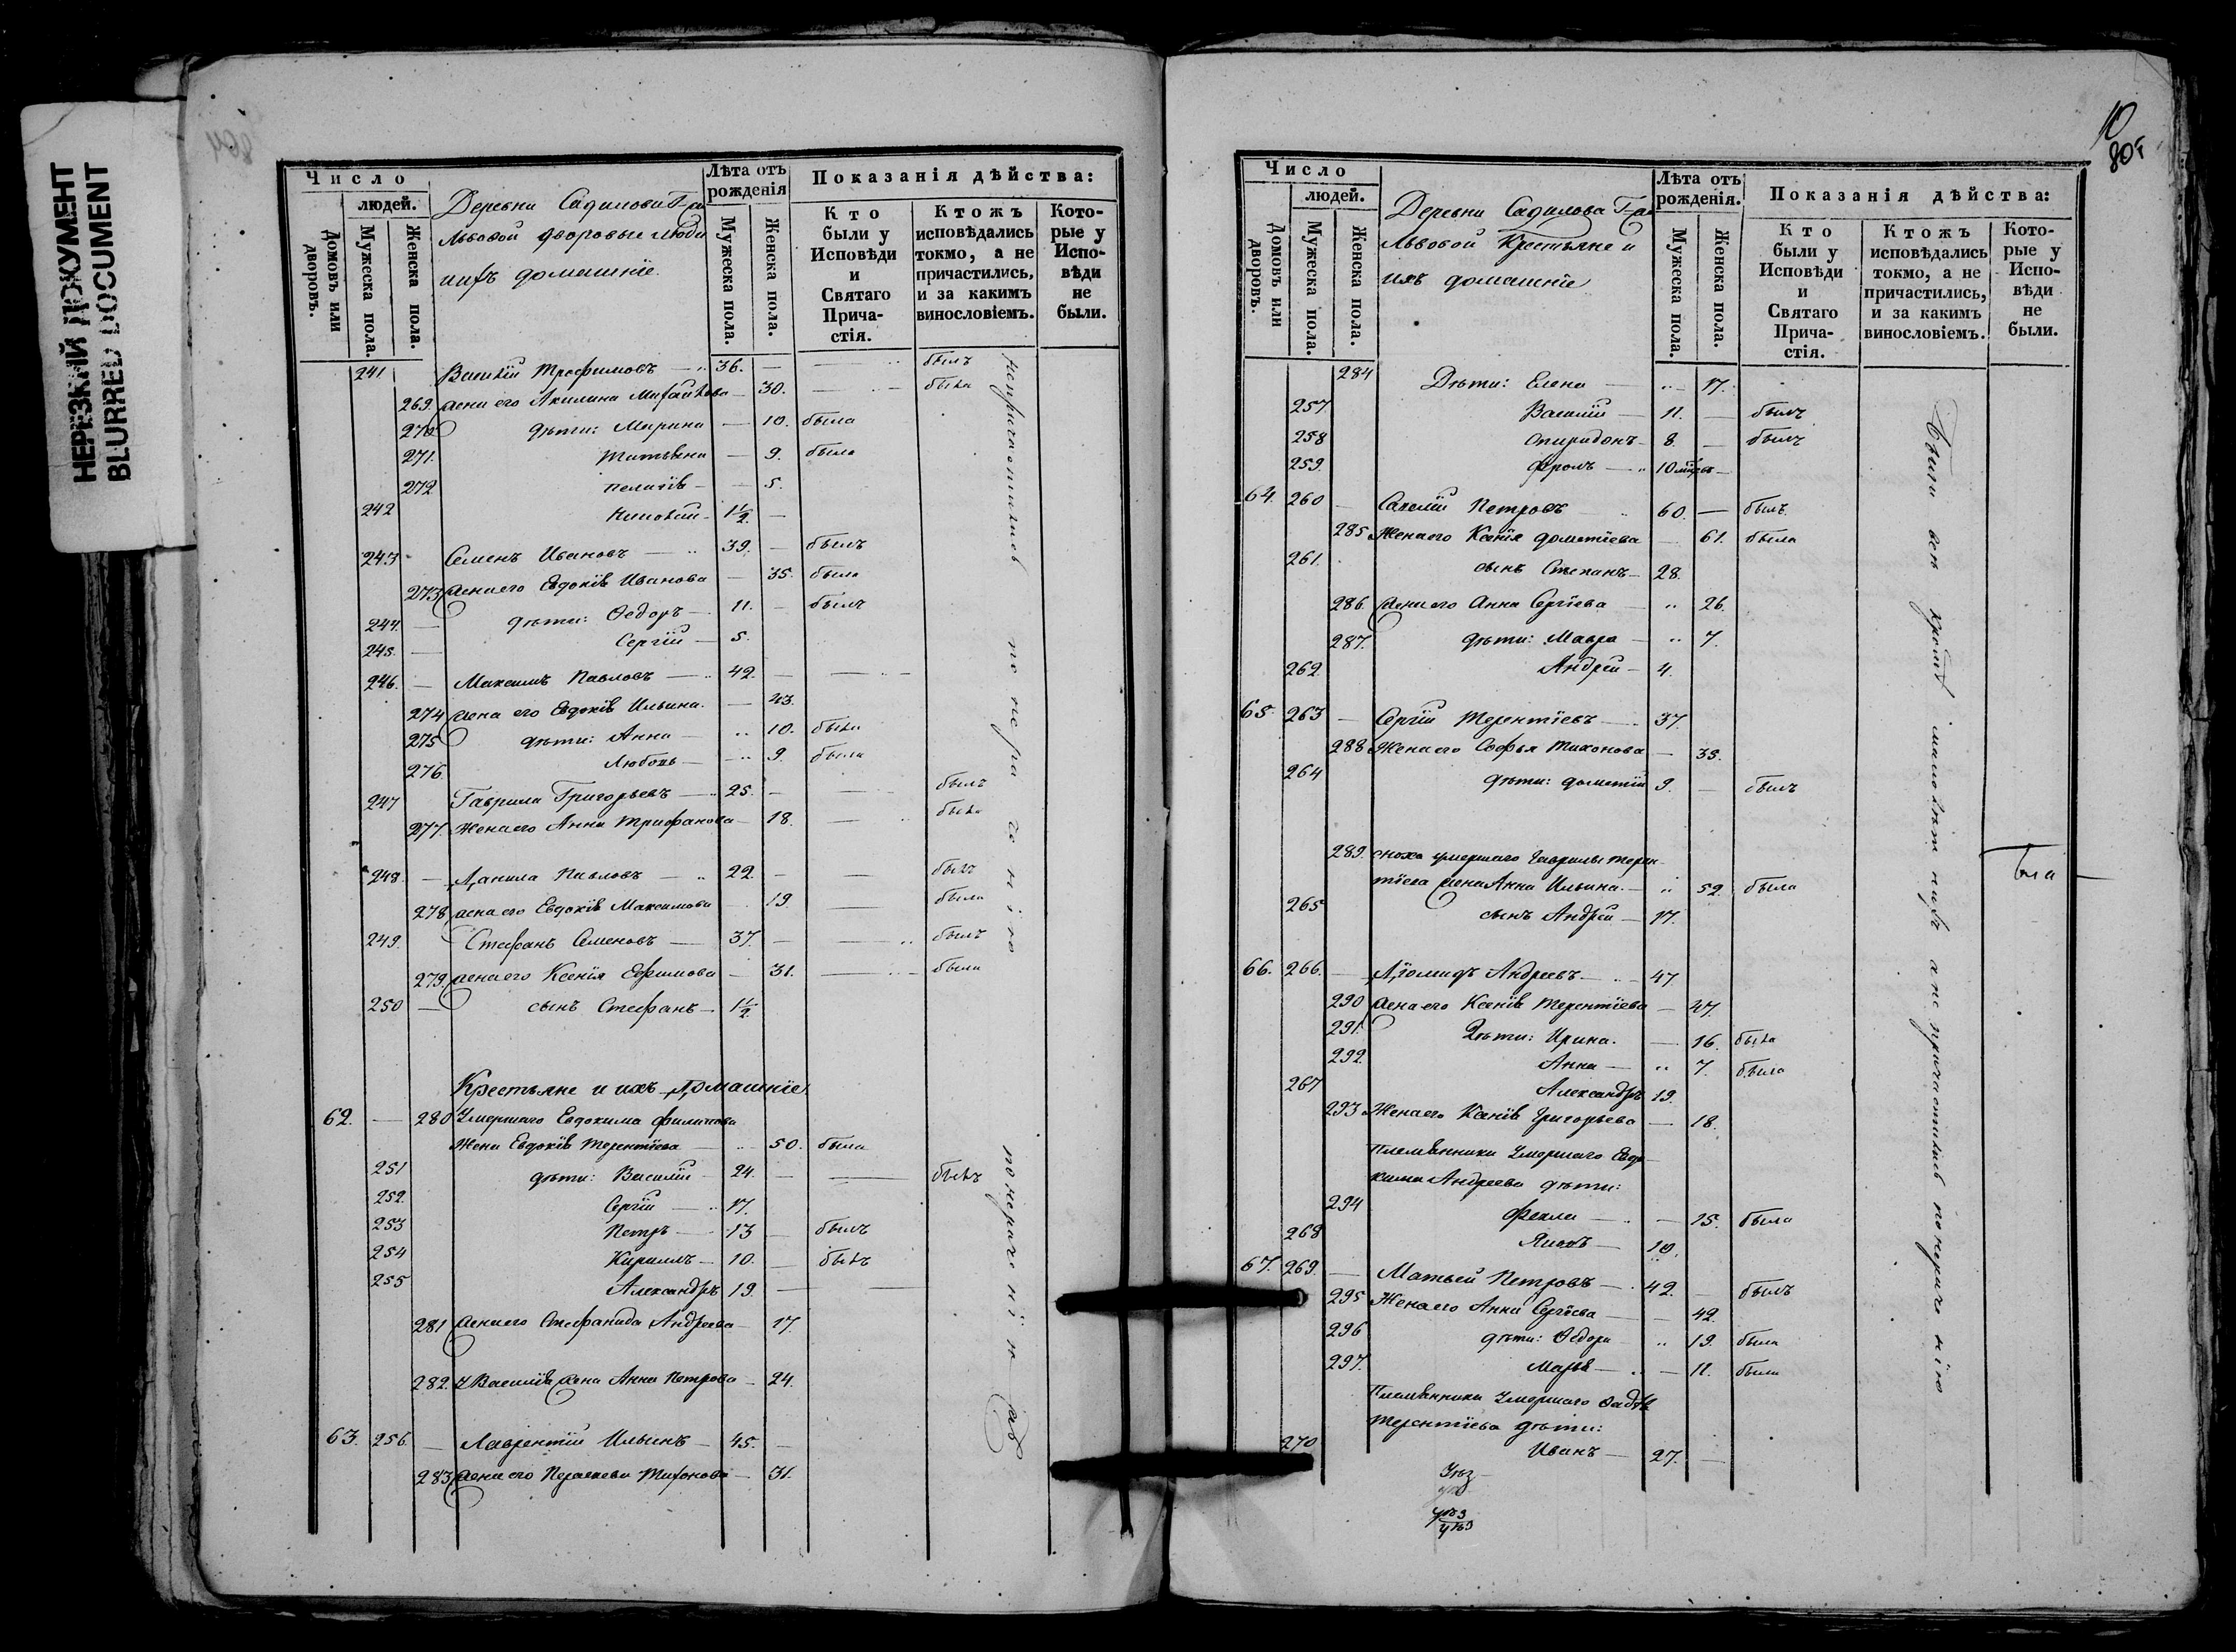 НЕРЕЗКИЙ ДОКУМЕНТ
BLURRED DOCUMENT
Число
людей.
Домовъ или дворовъ.
Мужеска пола.
Женска пола.
Деревни Садилови Г-жи
Львовой дворовые люди
ихъ домашніе
Лѣта отъ рожденія
Мужеска пола.
Женска пола.
Показанія дѣйства:
Кто были у Исповѣди и Святаго Причастія.
Ктожъ исповѣдались токмо, а не причастились, и за какимъ винословіемъ.
Которые у Исповѣди не были.
241 Василій Трофимовъ 36. былъ
269. жена его Акилина Михайлова 30. была
270 дѣти: Марина 10. была
271. Татьяна 9. была
272 Пелагія 5.
242 1½
243 Семенъ Ивановъ 39. былъ
273 жена его Евдокія Иванова 35. была
244. дѣти: Ѳедоръ 11. былъ
245. Сергій 5.
246. Максимъ Павловъ 42.
274 жена его Евдокія Ильина. 43.
275 дѣти: Анна 10. была
276 Любовь 9. была
247 Гаврила Григорьевъ 25. былъ
277. Жена его Анна Трифанова 18. была
248. Данила Павловъ 22. былъ
278 жена его Евдокія Максимова 19 была
249. Стефанъ Семеновъ 37. былъ
279. жена его Ксенія Ефимова 31. была
250 сынъ Стефанъ 1½
Крестьяне и ихъ Домашніе
62. 280 Умершаго Евдокима Филипова
Жена Евдокія Терентіева 50. была
251 дѣти: Василій 24. былъ
252. Сергій 17.
253 Петръ 13 былъ
254 Кириллъ 10. былъ
255 Александръ 19.
281 жена его Стефанида Андреева 17.
282. У Василія жена Анна Петрова 24.
63. 256. Лаврентій Ильинъ 45.
283 жена его Параскева Тихонова 31.
10
805
Число
людей.
Домовъ или дворовъ.
Мужеска пола.
Женска пола.
Деревни Садилова Г-жи
Львовой Крестьяне и
ихъ домашніе
Лѣта отъ рожденія.
Мужеска пола.
Женска пола.
Показанія дѣйства:
Кто были у Исповѣди и Святаго Причастія.
Ктожъ исповѣдались токмо, а не причастились, и за какимъ винословіемъ.
Которые у Исповѣди не были.
284 Дѣти: Елена 17.
257 Василій 11. былъ
258 Спиридонъ 8. былъ
259. Фролъ 10 мѣсяц
64. 260 Савелій Петровъ 60. былъ
285 Жена его Ксенія Дометіева 61. была
261. сынъ Степанъ 28.
286. жена его Анна Сергіева 26.
287. дѣти: Мавра 7.
262. Андрей 4.
65. 263 Сергій Терентіевъ 37.
288 Жена его Софья Тихонова 35.
264 дѣти: Дометій 9. былъ
289. сноха умершаго Гаврилы Терен-
тіева жена Анна Ильина. 52. была
265 сынъ Андрей 17.
66. 266. Діомидъ Андреевъ 47
290 жена его Ксенія Терентіева 47.
291. Дѣти: Ирина. 16. была
292. Анна 7. была
267 Александръ 19.
293 Жена его Ксенія Григорьева 18.
Племянники Умершаго Евдо-
кима Андреева дѣти:
294 Фекла 15. была
268 Яковъ 10.
67. 269. Матвей Петровъ 42. былъ
295 Жена его Анна Сергіева 42.
296 дѣти: Ѳедора 19. была
297. Марья 11. была
Племянники Умершаго
Терентіева дѣти:
270 Иванъ 27.
Были всѣ кромѣ малолѣтнихъ а не причастились по нераченію